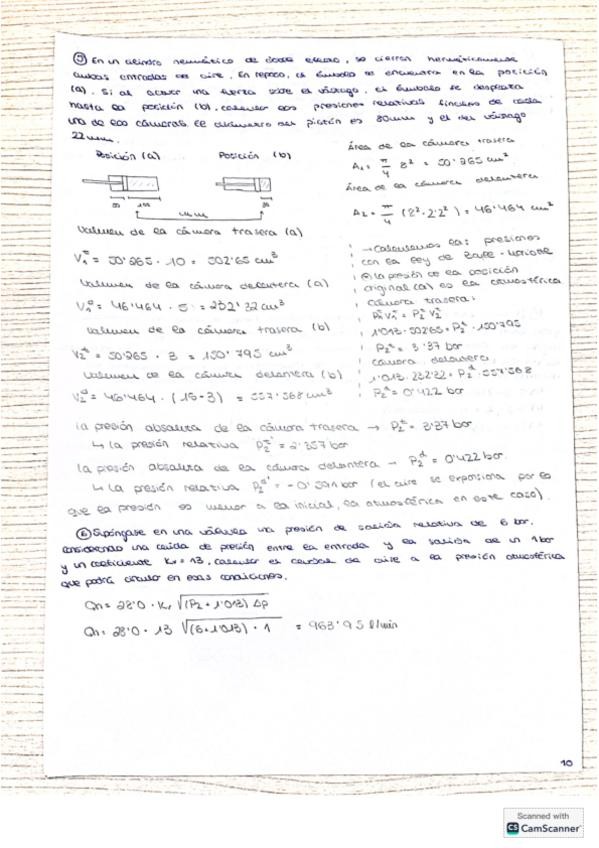 ⑤ En un cilindro neumático de doble efecto, se cierran herméticamente
ambas entradas de aire. En reposo, el émbolo se encuentra en la posición
(a). Si al actuar una fuerza sobre el vástago, el émbolo se desplaza
hasta la posición (b), calcular las presiones relativas finales de cada
una de las cámaras. El diámetro del pistón es 80mm y el del vástago
22mm.
Posición (a) Posición (b)
50 100 30
mm
Volumen de la cámara trasera (a)
V₁ᵗ = 50'265 · 10 = 502'65 cm³
Volumen de la cámara delantera (a)
V₁ᵈ = 46'464 · 5 = 232'32 cm³
Volumen de la cámara trasera (b)
V₂ᵗ = 50'265 · 3 = 150'795 cm³
Volumen de la cámara delantera (b)
V₂ᵈ = 46'464 · (15-3) = 557'568 cm³
Área de la cámara trasera
A₁ = π/4 8² = 50'265 cm²
Área de la cámara delantera
A₂ = π/4 (8²-2'2²) = 46'464 cm²
→ Calculamos las presiones
con la ley de Boyle - Mariotte
la presión de la posición
original (a) es la atmosférica
Cámara trasera:
P₁ᵗ V₁ᵗ = P₂ᵗ V₂ᵗ
1'013·502'65 = P₂ᵗ · 150'795
P₂ᵗ = 3'37 bar
Cámara delantera:
1'013·232'32 = P₂ᵈ · 557'568
P₂ᵈ = 0'422 bar
la presión absoluta de la cámara trasera → P₂ᵗ = 3'37 bar
↳ la presión relativa P₂ᵗ' = 2'357 bar
la presión absoluta de la cámara delantera → P₂ᵈ = 0'422 bar.
↳ la presión relativa P₂ᵈ' = -0'591 bar (el aire se expansiona por lo
que la presión es menor a la inicial, la atmosférica en este caso).
⑥ Supóngase en una válvula una presión de salida relativa de 6 bar.
considerando una caída de presión entre la entrada y la salida de un 1 bar
y un coeficiente Kv = 13, calcular el caudal de aire a la presión atmosférica
que podrá circular en esas condiciones.
Qn = 28'0 · Kv √(P₂ + 1'013) Δp
Qn = 28'0 · 13 √(6+1'013) · 1 = 963'95 l/min
10
Scanned with
CS CamScanner